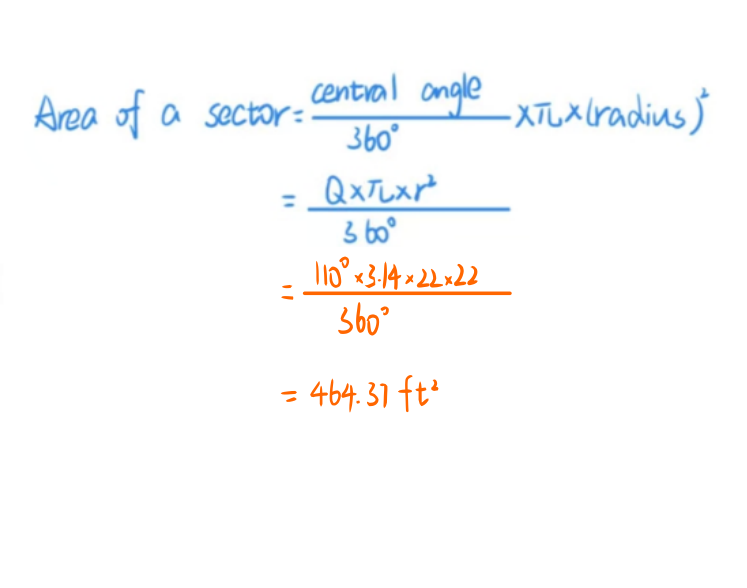 Area of a sector = central angle / 360° × π × (radius)²
= Q×π×r² / 360°
= 110° × 3.14 × 22 × 22 / 360°
= 464.37 ft²